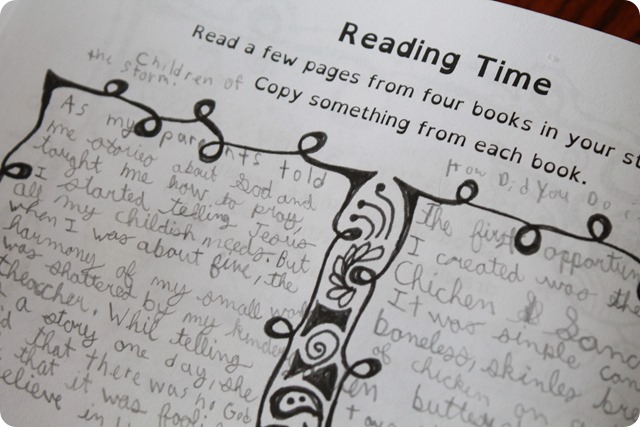 Reading Time
Read a few pages from four books in your st
Copy something from each book.
Children of
the storm.
As my parents told
me stories about God and
taught me how to pray,
I started telling Jesus
all my childish needs. But
when I was about five, the
harmony of my small wor
was shattered by my kinder
theacher. Whil telling
a story one day, she
d that there was no God
that it was fooli
elieve in
How Did You Do
The first opportu
I created was the
Chicken Sand
It was simple com
boneless, skinles br
of chicken on a
en butter